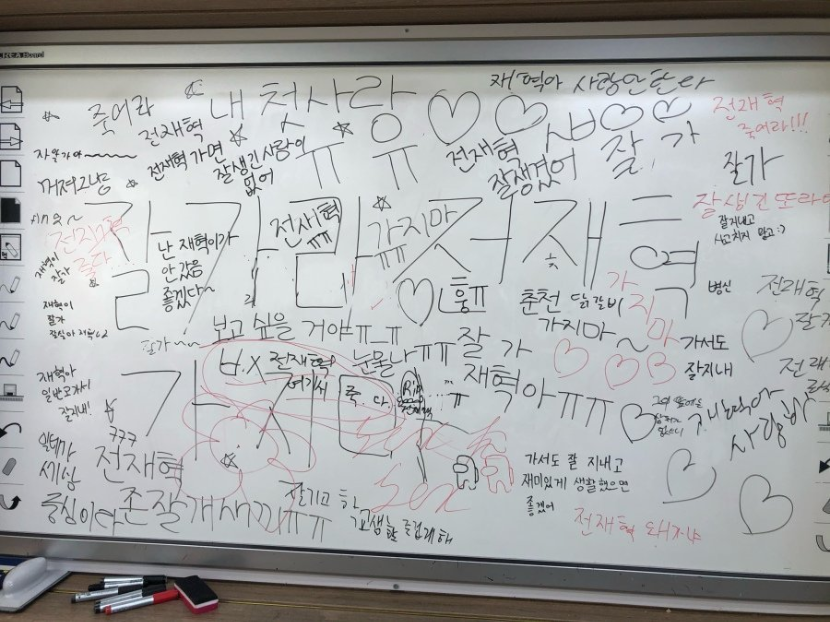 내 첫사랑
재혁아 사랑안한다
죽어라
전재혁
ㅠㅠ
잘 가
전재혁
죽어라!!!
자알가아~~~~~
전재혁 가면
잘생긴 사람이
없어
전재혁
잘생겼어
잘가
꺼져그냥
잘가라 전재혁
잘생긴 또라이
잘지내고
사고치지 말고:)
전재혁
난 재혁이가
안 갔음
좋겠다~
전재혁
ㅠㅠ
가지마
ㅠㅠ
재혁이
잘자
재혁이
잘가
(훕ㅠ
춘천 닭갈비
가지마
병신
전재혁
보고 싶을 거야ㅠ_ㅠ
잘 가
가지마~
가서도
잘지내
가지
ㅂ.x 전재혁
여기서
죽 다.
눈물나ㅠㅠ
RiP
전재혁
...ㅠ
재혁아ㅠㅠ
재혁아
잘지내!
사랑해
ㅋㅋㅋ
전재혁
존잘개새끼ㅠㅠ
중심이다
가서도 잘 지내고
재미있게 생활했으면
좋겠어
잘가고
고생는 즐겁게해
전재혁 돼지냐